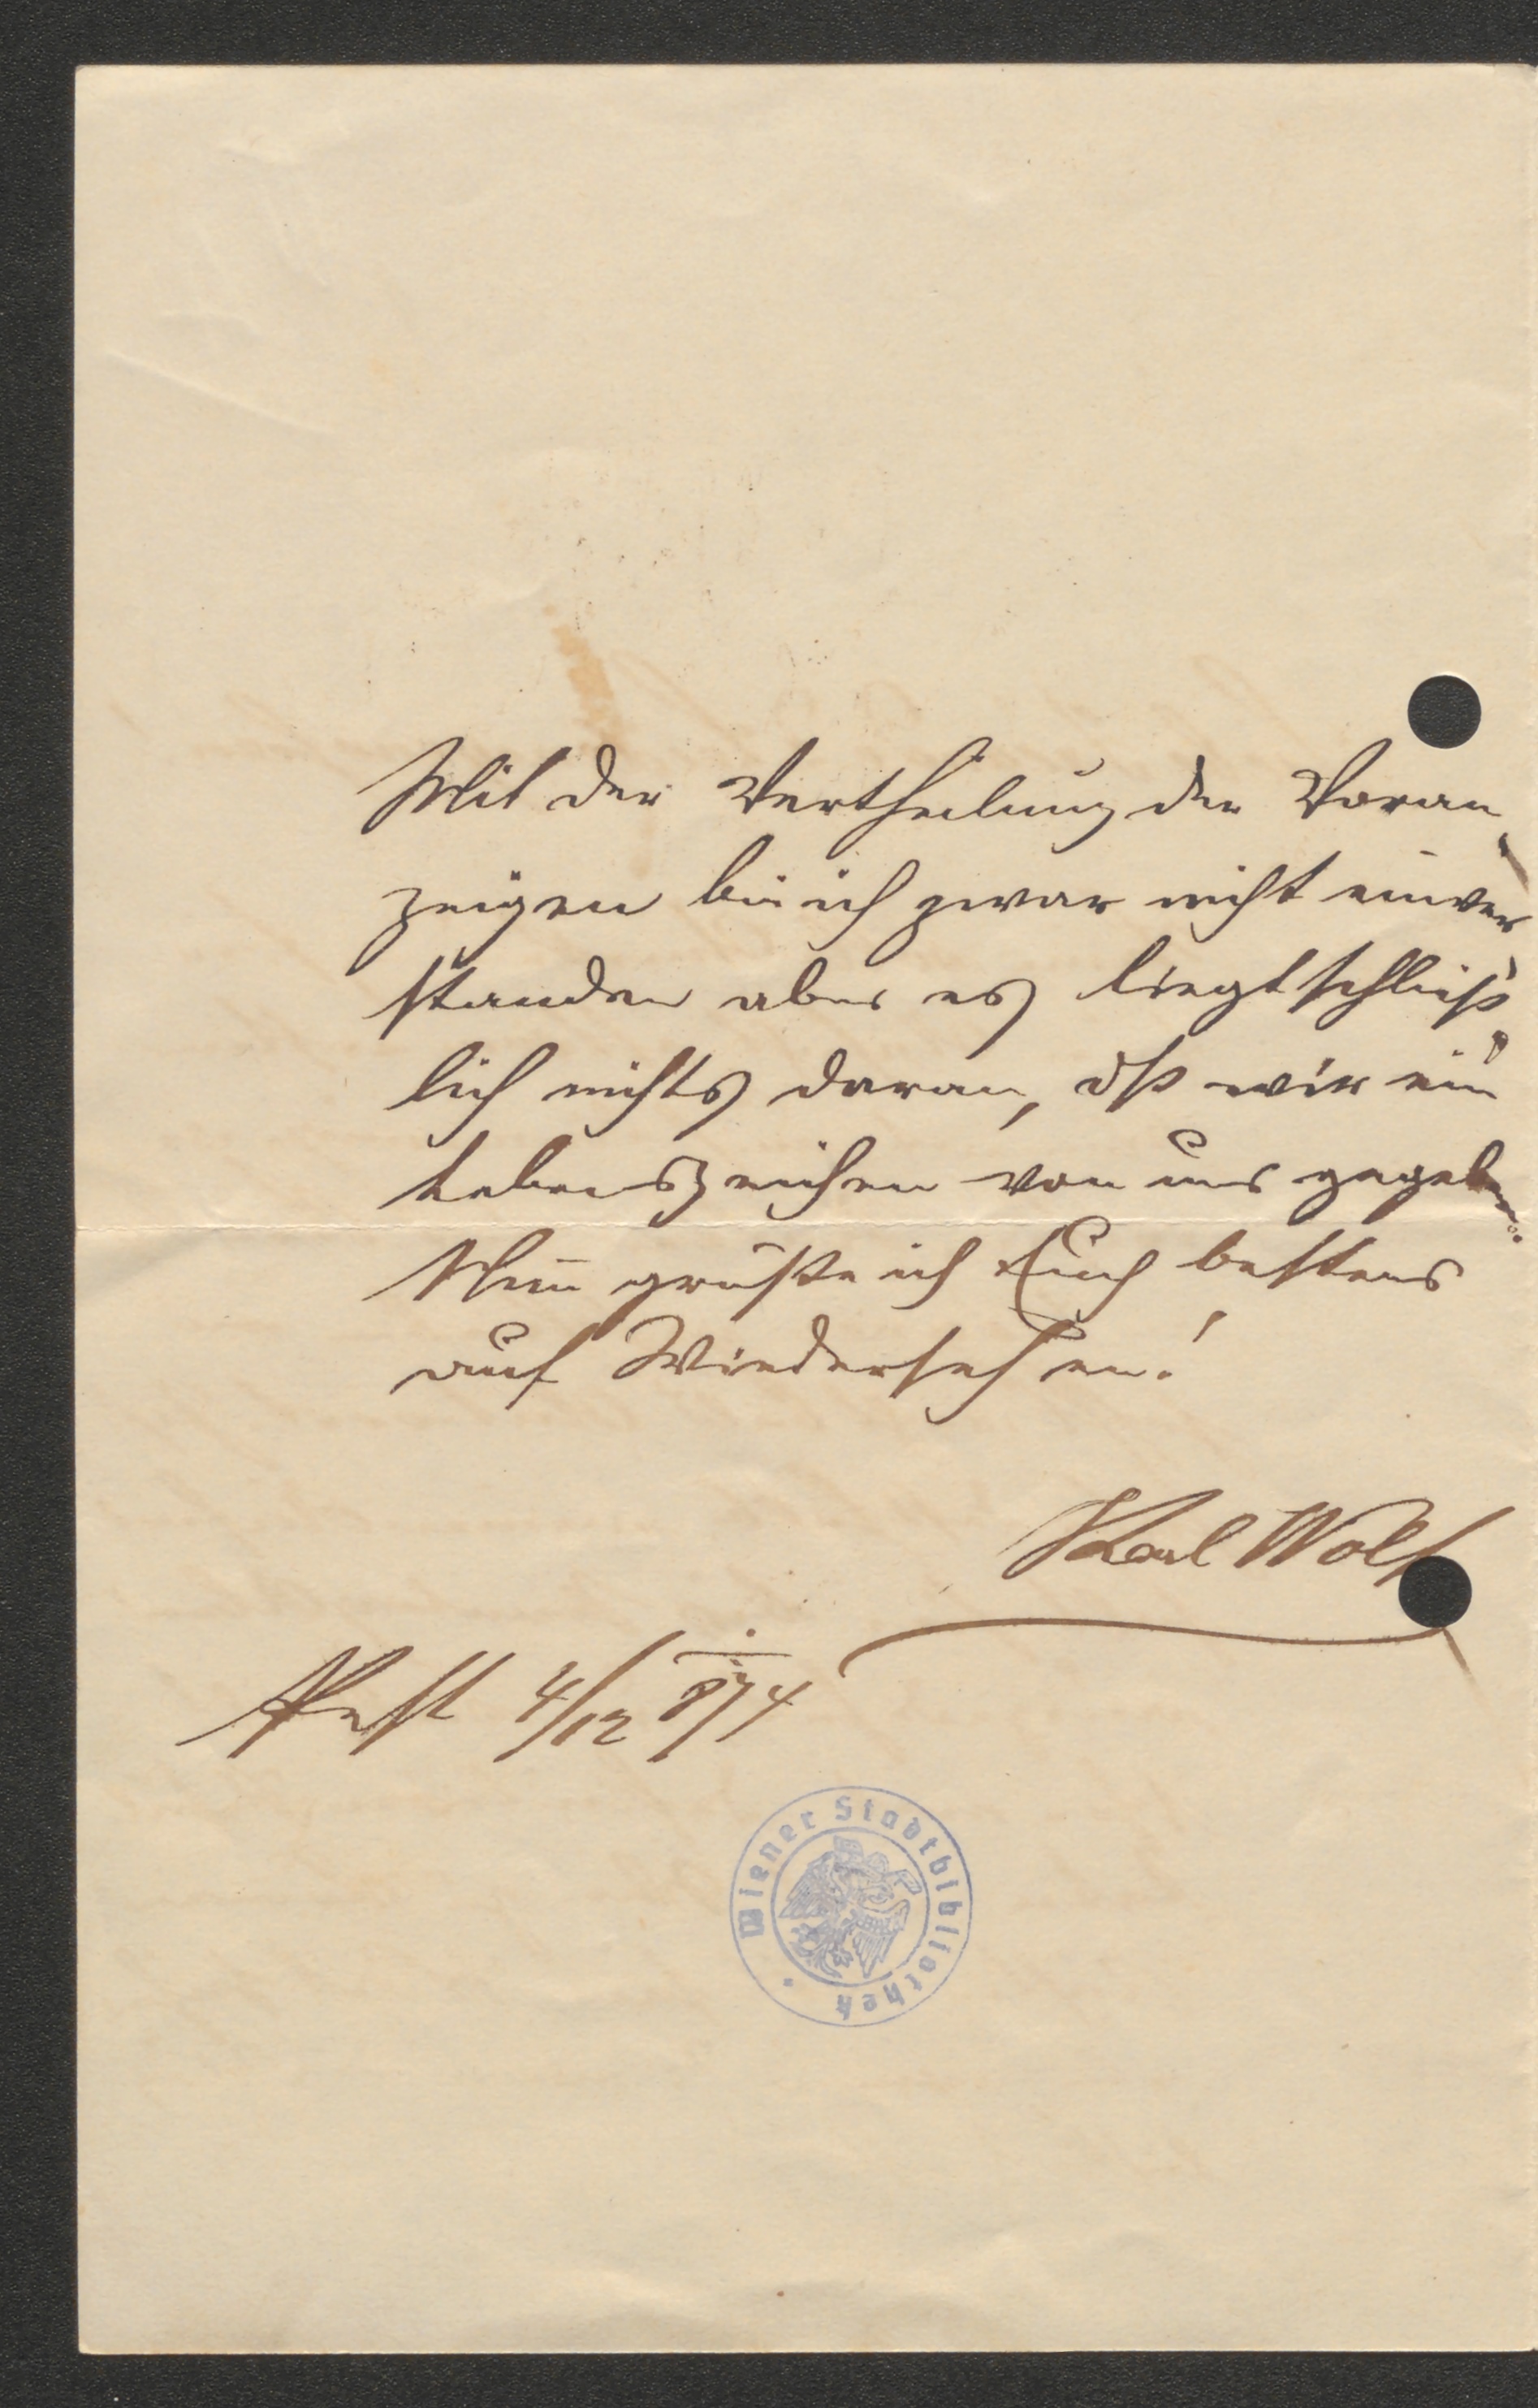 Mit der Vertheilung der Voran¬
zeigen bin ich zwar nicht einver
standen aber es liegt schließ¬
lich nichts daran, dß wir ein
Lebenszeichen von uns gegeben.
Nun grüße ich Euch bestens
auf Wiedersehen!
Karl Wolf
Pest 4/12 874
Wiener Stadtbibliothek